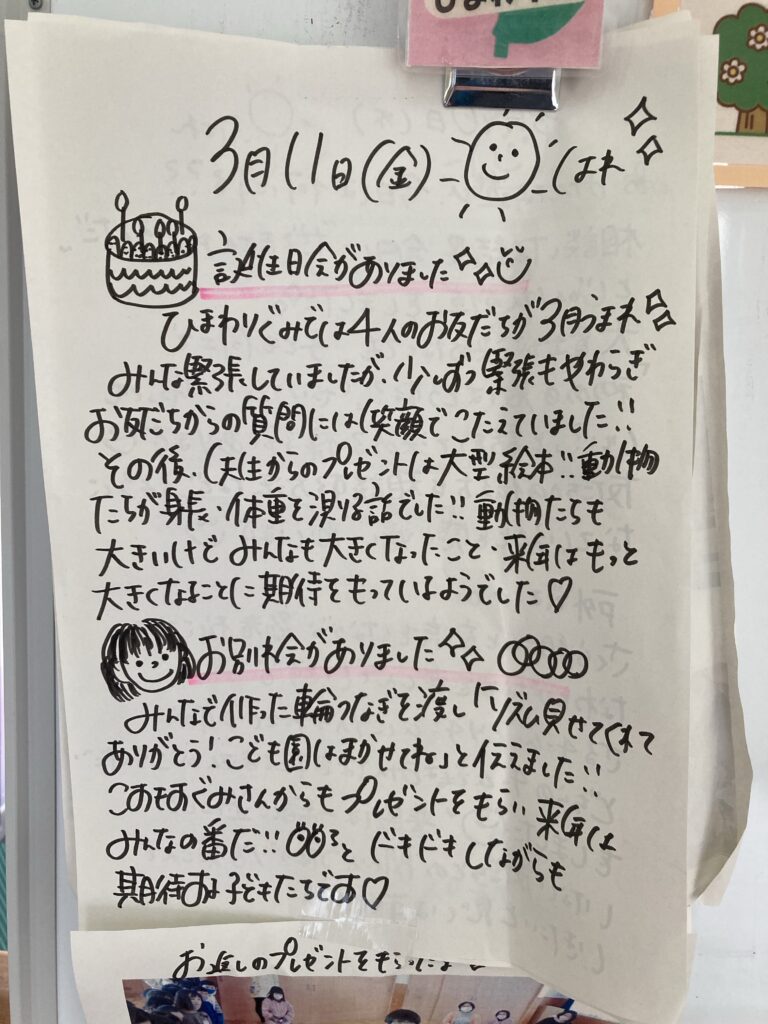 3月11日(金) はれ
誕生日会がありました
ひまわりぐみでは4人のお友だちが3月うまれ
みんな緊張していましたが、少しずつ緊張もやわらぎ
お友だちからの質問には笑顔でこたえていました!!
その後、先生からのプレゼントは大型絵本!!動物
たちが身長、体重を測る話でした!!動物たちも
大きいけどみんなも大きくなったこと、来年はもっと
大きくなることに期待をもっているようでした♡
お別れ会がありました
みんなで作った輪つなぎを渡し「リズム見せてくれて
ありがとう!こども園はまかせてね」と伝えました!!
こすもすぐみさんからもプレゼントをもらい来年は
みんなの番だ!! と ドキドキしながらも
期待する子どもたちです♡
お返しのプレゼントをもらったよ